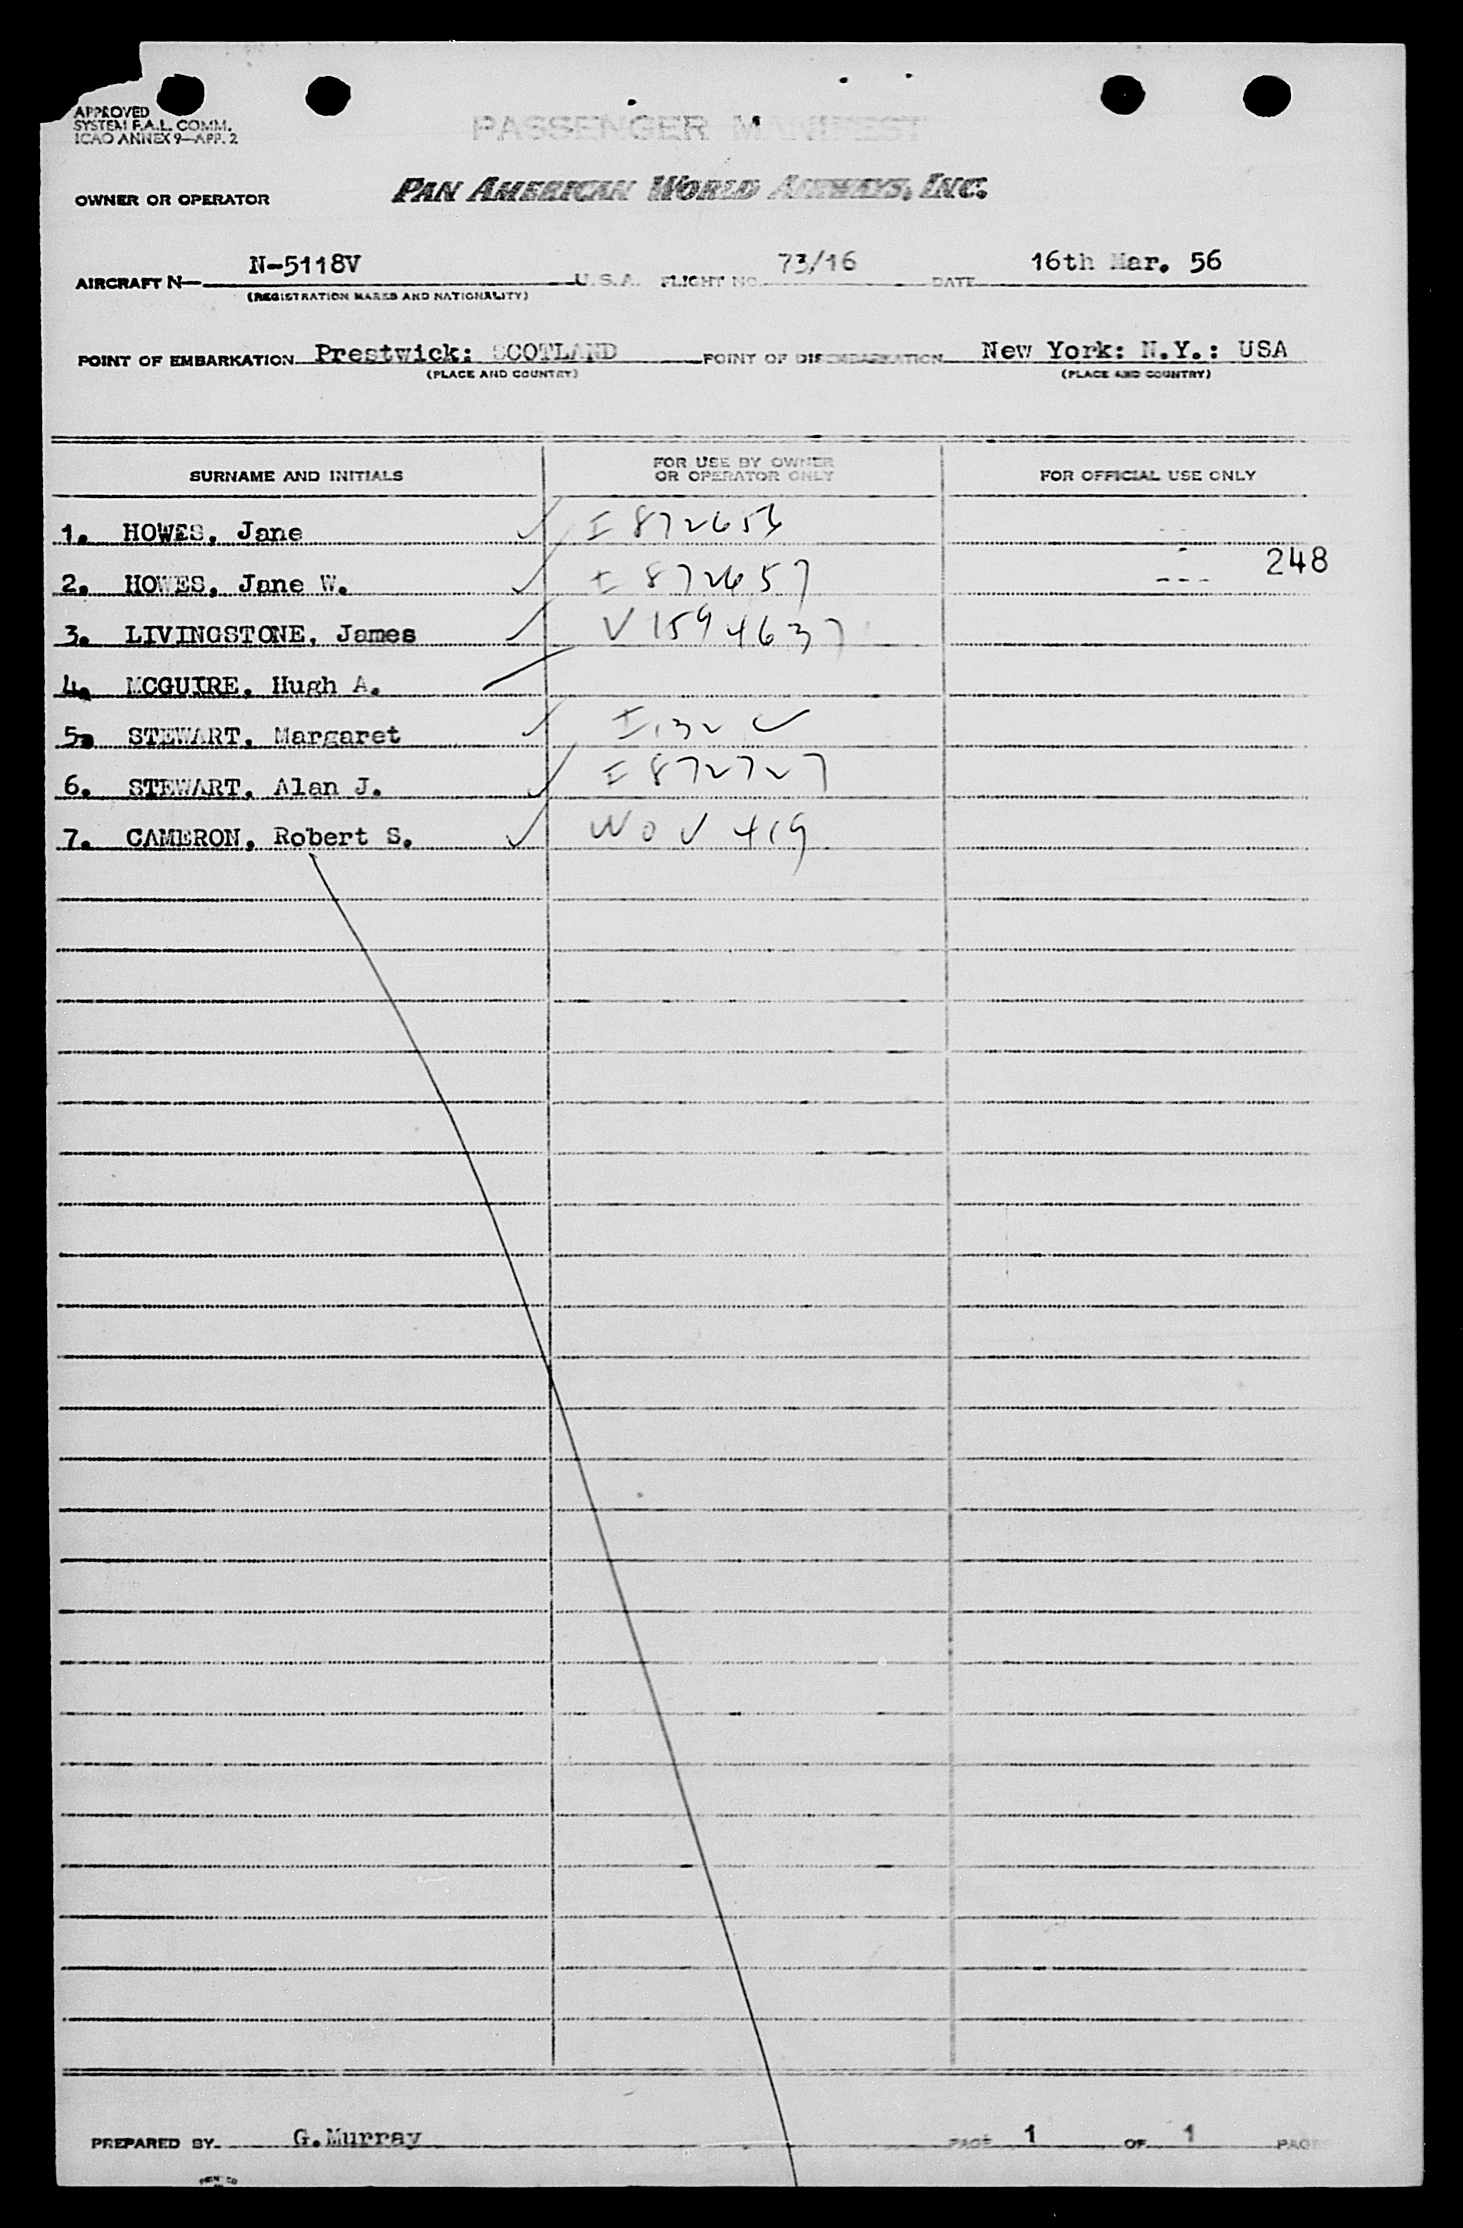 APPROVED
SYSTEM F.A.L. COMM.
ICAO ANNEX 9—APP. 2
PASSENGER MANIFEST
OWNER OR OPERATOR PAN AMERICAN WORLD AIRWAYS, INC.
AIRCRAFT N— N-5118V U.S.A. FLIGHT NO. 73/16 DATE 16th Mar. 56
(REGISTRATION MARKS AND NATIONALITY)
POINT OF EMBARKATION Prestwick: SCOTLAND POINT OF DISEMBARKATION New York: N.Y.: USA
(PLACE AND COUNTRY) (PLACE AND COUNTRY)
SURNAME AND INITIALS FOR USE BY OWNER OR OPERATOR ONLY FOR OFFICIAL USE ONLY
1. HOWES, Jane ✓ I 872656
248
2. HOWES, Jane W. ✓ I 872657
3. LIVINGSTONE, James ✓ V 1594637
4. MCGUIRE, Hugh A.
5. STEWART, Margaret ✓ I 132 ✓
6. STEWART, Alan J. ✓ I 872727
7. CAMERON, Robert S. ✓ 419
PREPARED BY G.Murray PAGE 1 OF 1 PAGES